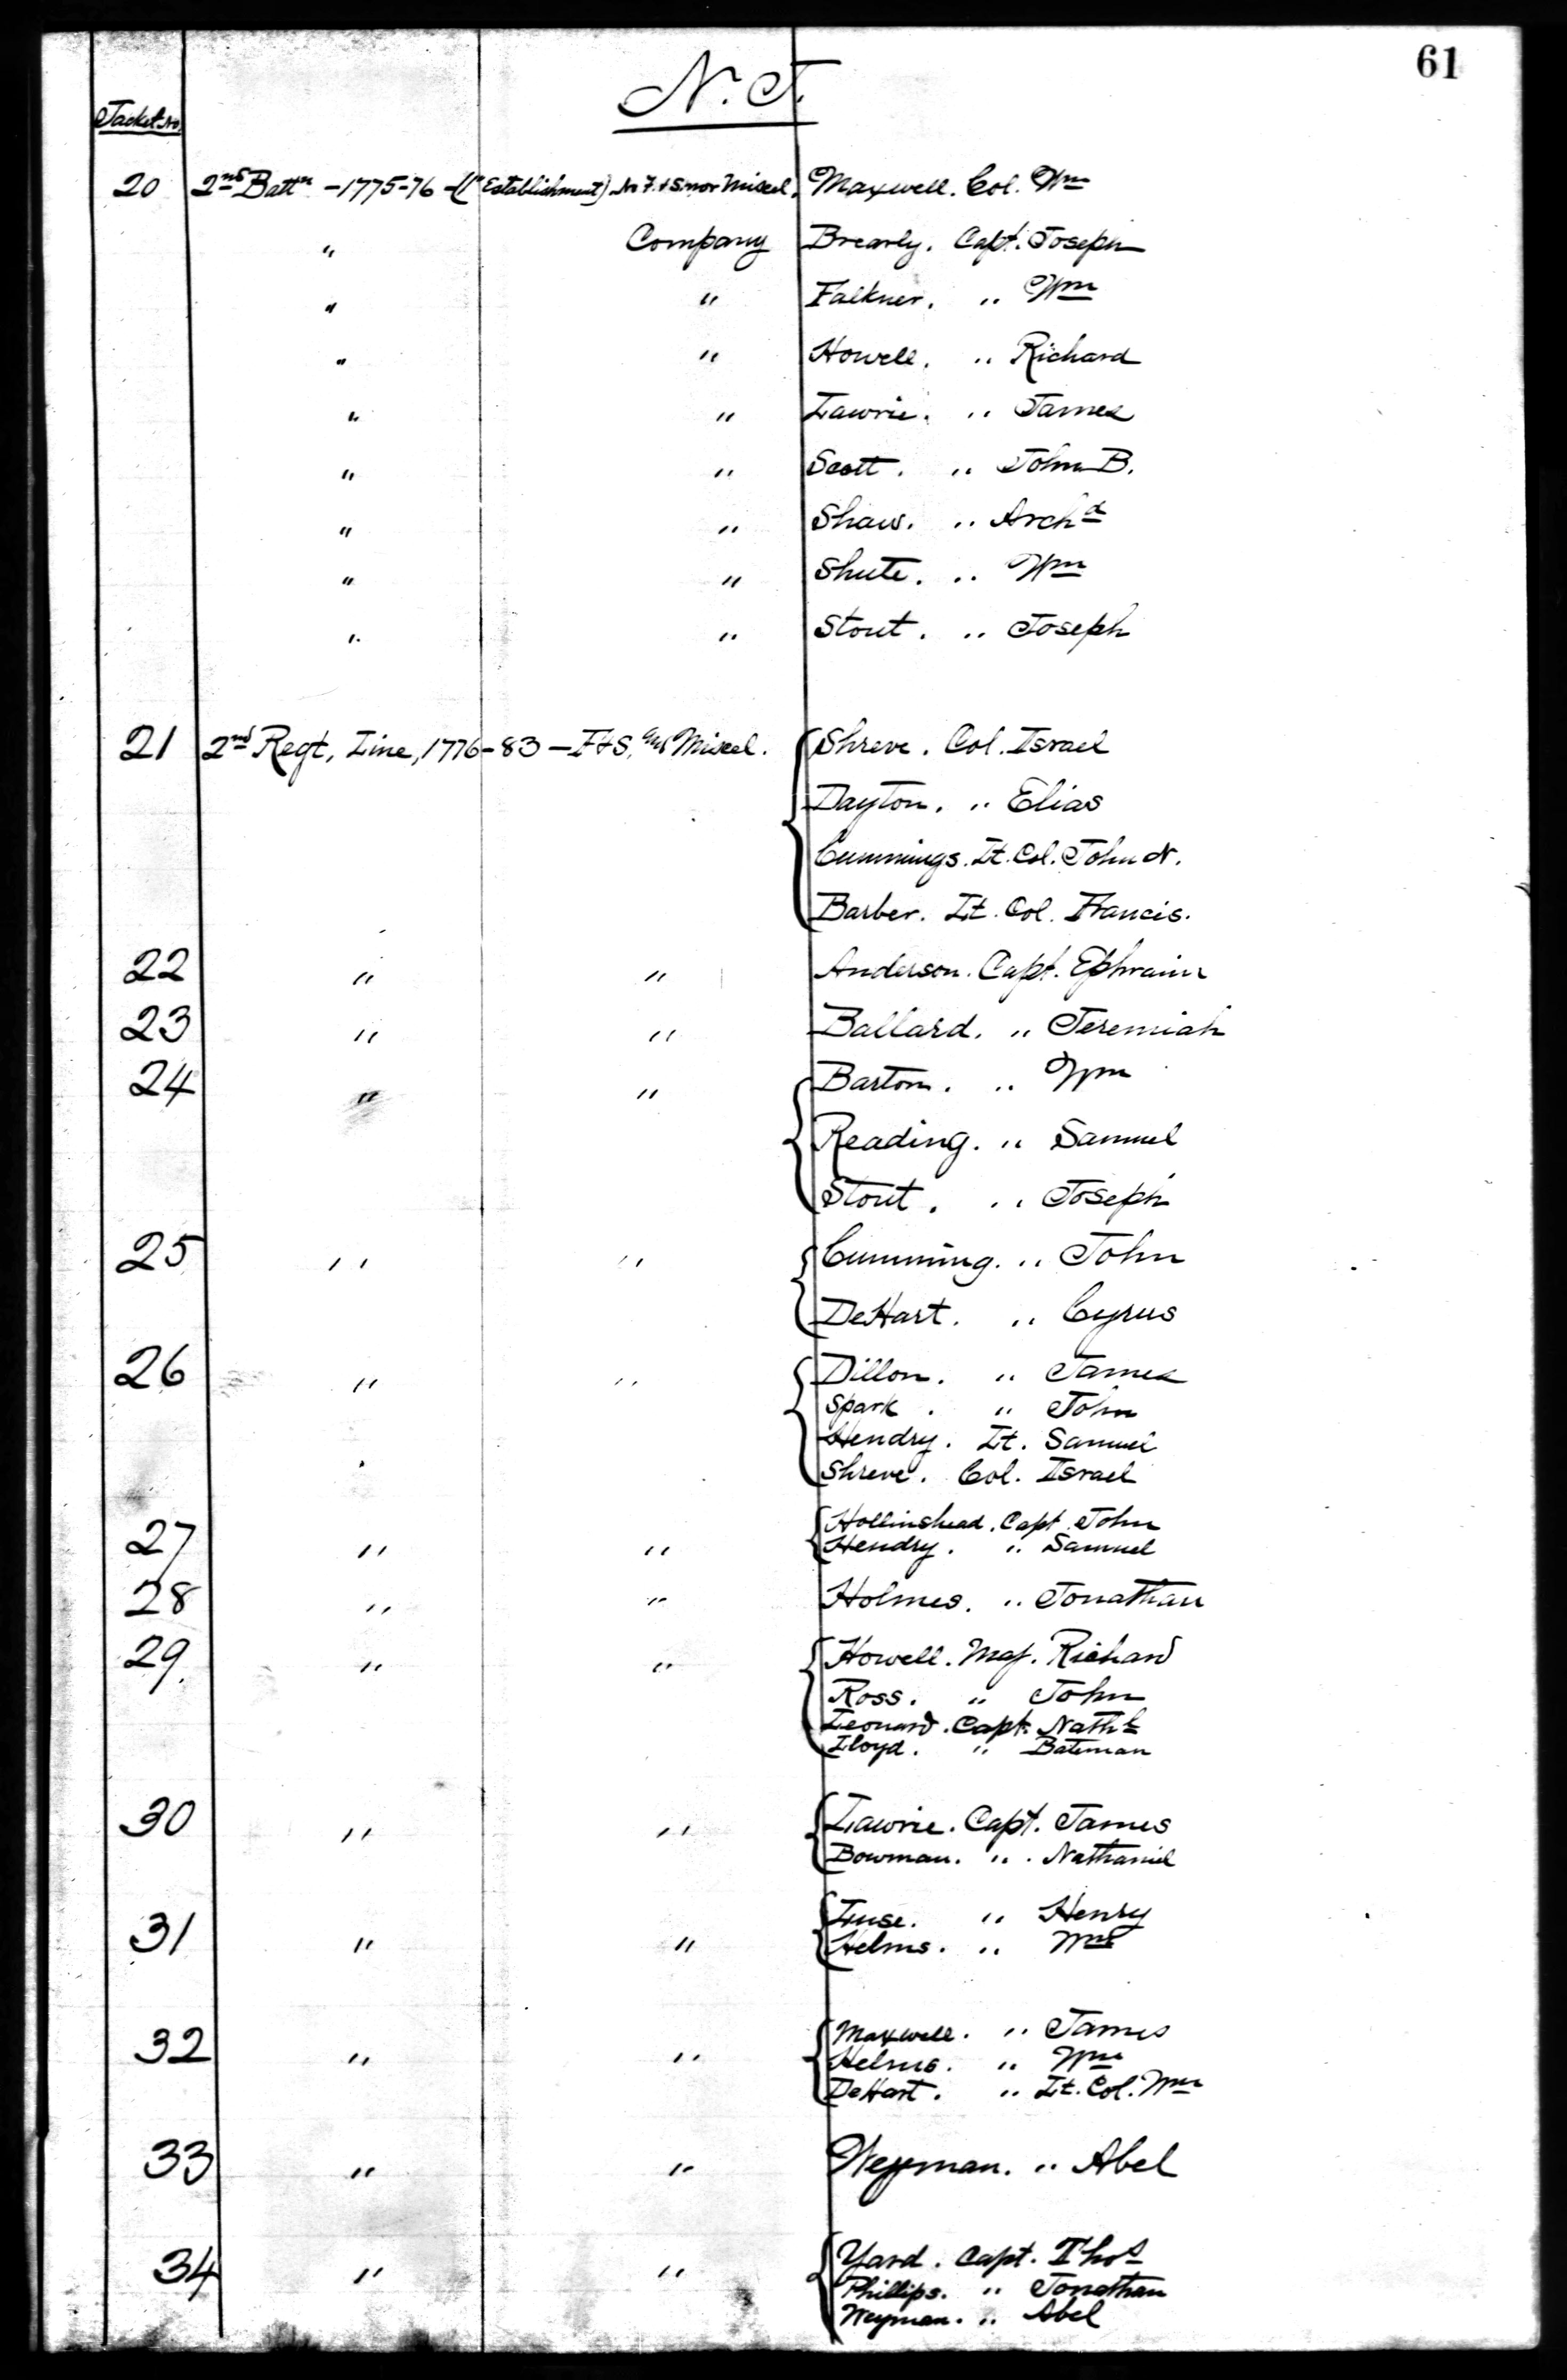 61
N. J.
Jacket No.
20 2nd Battn - 1775-76 - (1st Establishment) No F. & S. nor Miscel. Maxwell. Col. Wm
" Company Brearly. Capt. Joseph
" " Falkner. " Wm
" " Howell. " Richard
" " Lawrie. " James
" " Scott. " John B.
" " Shaw. " Archd
" " Shute. " Wm
" " Stout. " Joseph
21 2nd Regt, Line, 1776-83 - F & S. and Miscel. Shreve. Col. Israel
Dayton. " Elias
Cummings. Lt. Col. John N.
Barber. Lt. Col. Francis.
22 " " Anderson. Capt. Ephraim
23 " " Ballard. " Jeremiah
24 " " Barton. " Wm
Reading. " Samuel
Stout. " Joseph
25 " " Cumming. " John
DeHart. " Cyrus
26 " " Dillon. " James
Spark. " John
Hendry. Lt. Samuel
Shreve. Col. Israel
Hollinshead. Capt. John
27 " " Hendry. " Samuel
28 " " Holmes. " Jonathan
29. " " Howell. Maj. Richard
Ross. " John
Leonard. Capt. Nathl
Lloyd. " Bateman
30 " " Lawrie. Capt. James
Bowman. " Nathaniel
Luse. " Henry
31 " " Helms. " Wm
Maxwell. " James
32 " " Helms. " Wm
DeHart. " Lt. Col. Wm
33 " " Weyman. " Abel
Yard. Capt. Thos
34 " " Phillips. " Jonathan
Weyman. " Abel